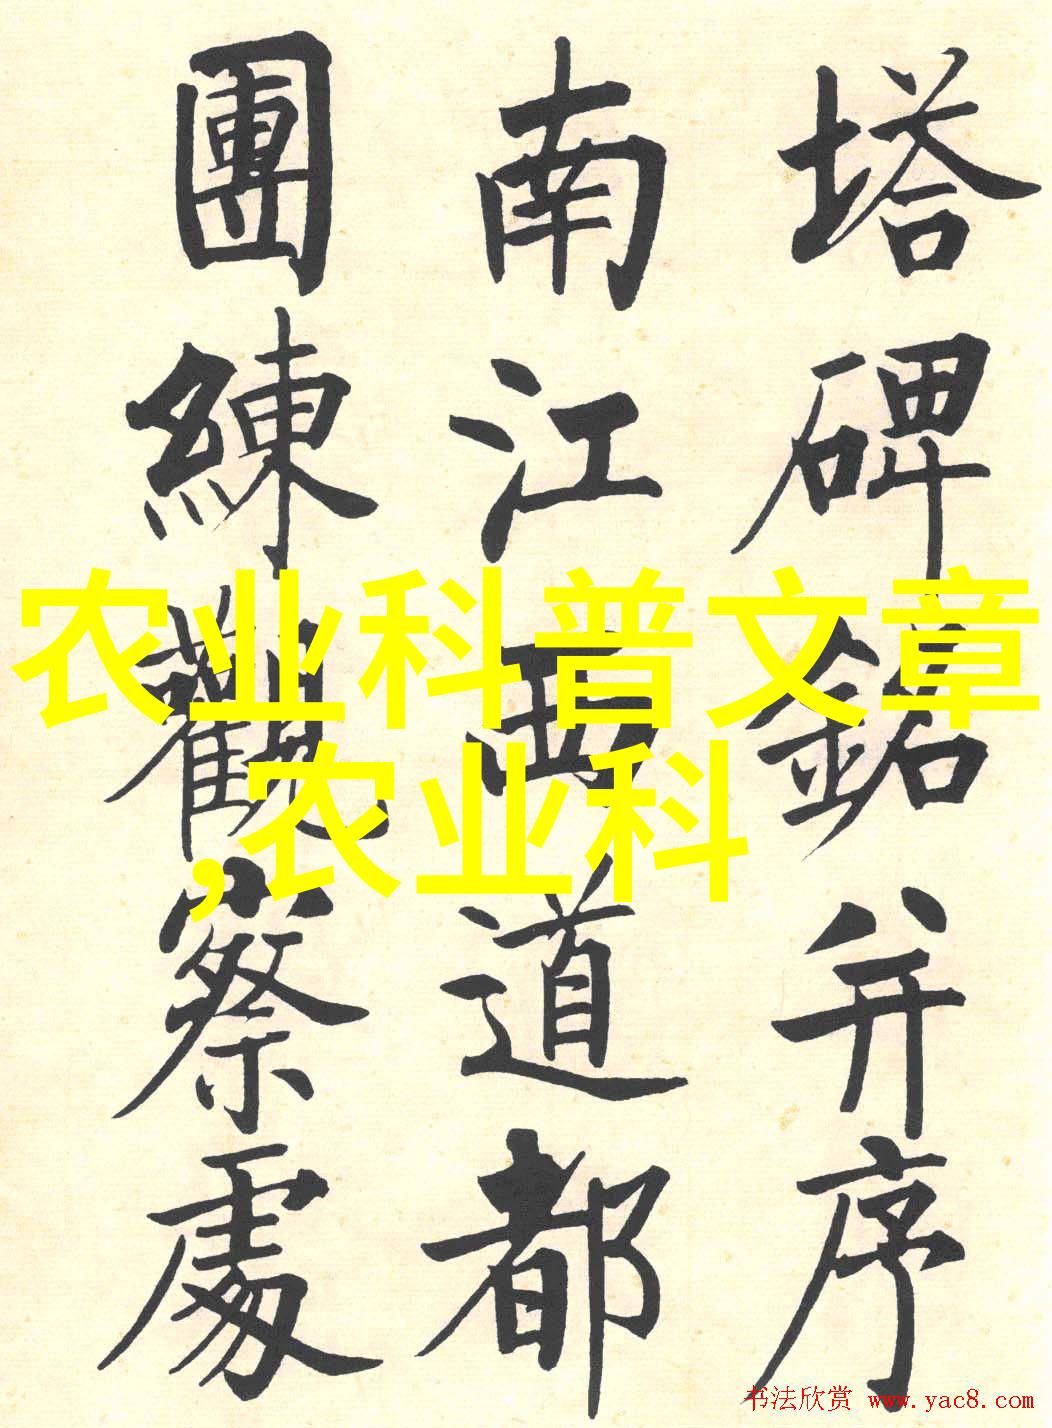 塔碑銘并序
南江西道都
團練觀察處
农业科普文章
,农业科
书法欣赏 www.yac8.com